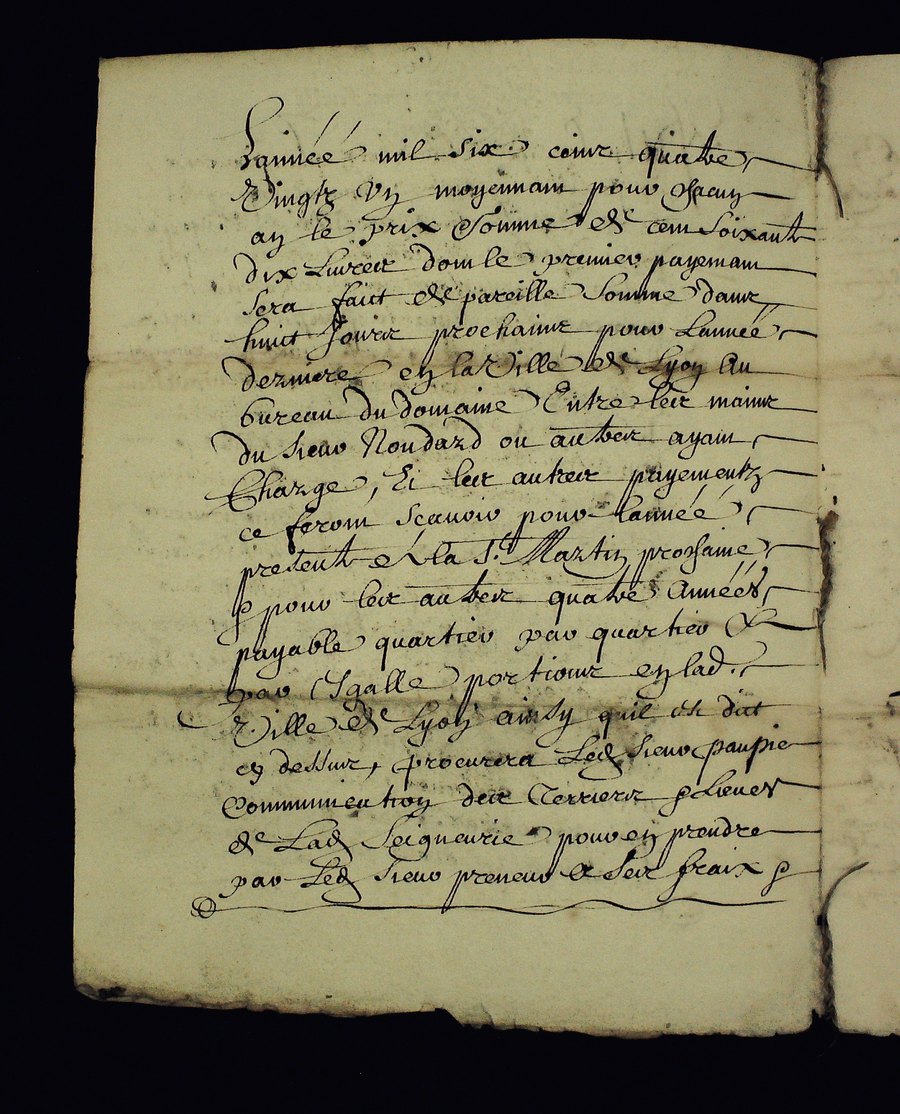 Lannéé mil six cens quatre
Vingtz Vn moyennant pour chacun
an le prix Somme de cent Soixante
dix Livres dont le premier payement
sera faict de pareille Somme dans
huict Jours prochains pour Lannéé
derniere en la Ville de Lyon Au
bureau du domaine Entre les mains
du sieur Noudard ou autres ayant
Charge, Et les autres payementz
ce feront sçauoir pour lannéé
presente a la St. Martin prochaine
& pour les autres quatre Annéés
payable quartier par quartier &
par Esgalle portions en lad.
Ville de Lyon ainsy quil est dict
cy dessus, procurera Led sieur paupie
Communication des Terriers & Lieues
de Lad Seigneurie pour en prendre
par Led sieur preneur a ses fraix &